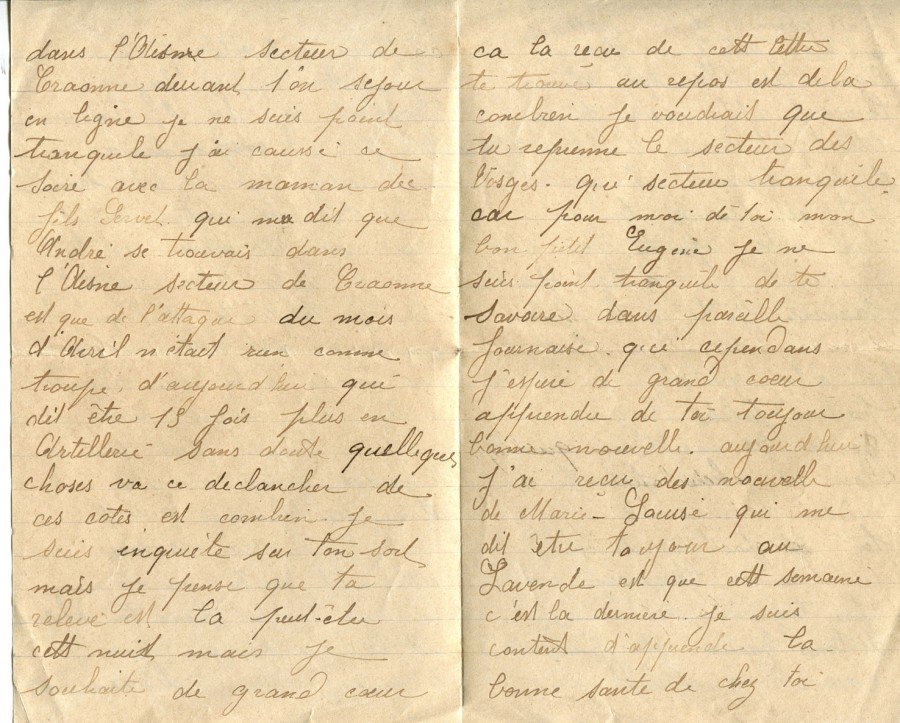 dans l'Aisne secteur de
Craonne devant ton sejour
en ligne je ne suis point
tranquile j'ai causé ce
soire avec la maman de
fils Servel qui ma dit que
André se trouvais dans
l'Aisne secteur de Craonne
est que de l'attaque du mois
d'Avril n'était rien comme
troupe d'aujourd'hui qui
dit être 15 fois plus en
Artillerie sans doute quelleques
choses va ce declancher de
ces cotés est combien je
suis enquiète sur ton sort
mais je pense que ta
releve est la peut-être
cett nuit mais je
souhaite de grand cœur
ca la reçu de cett letter
te trouve au repos est de la
conbien je voudrais que
tu reprenne le secteur des
Vosges. qu' secteur tranquile
car pour moi de toi mon
bon petit Eugène je ne
suis point tranquile de te
savoire dans pareille
fournaise. qui cependans
j'espere de grand coeur
apprendre de toi toujour
bonne nouvelle. aujourd'hui
j'ai reçu des nouvelle
de Marie-Louise qui me
dit être toujour au
Lavende est que cett semaine
c'est la derniere. je suis
content d'apprende la
bonne santé de chez toi